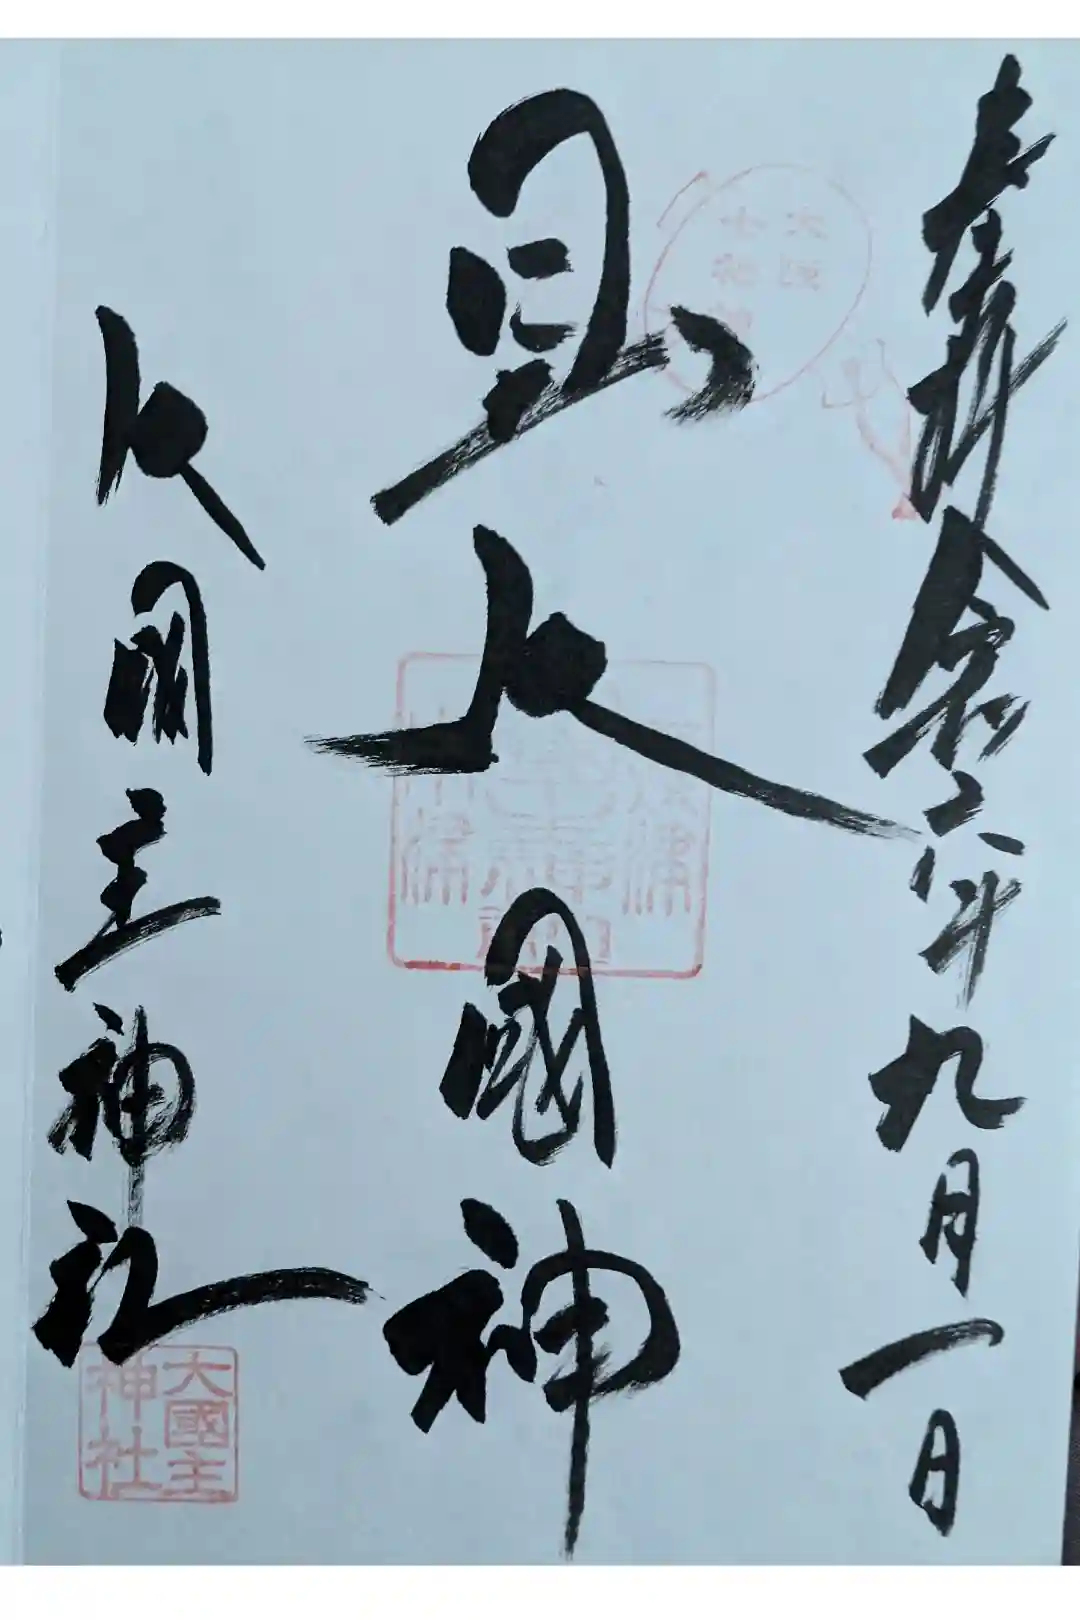 奉拝 令和六年九月一日
大阪
七福神
大國神
大國主神社
大國主
神社